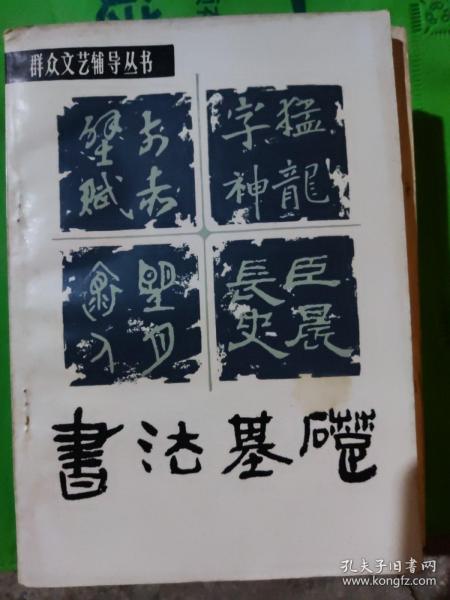 群众文艺辅导丛书
前赤
壁賦
猛龍
字神
臣晨
長史
書法基礎
孔夫子旧书网
www.kongfz.com